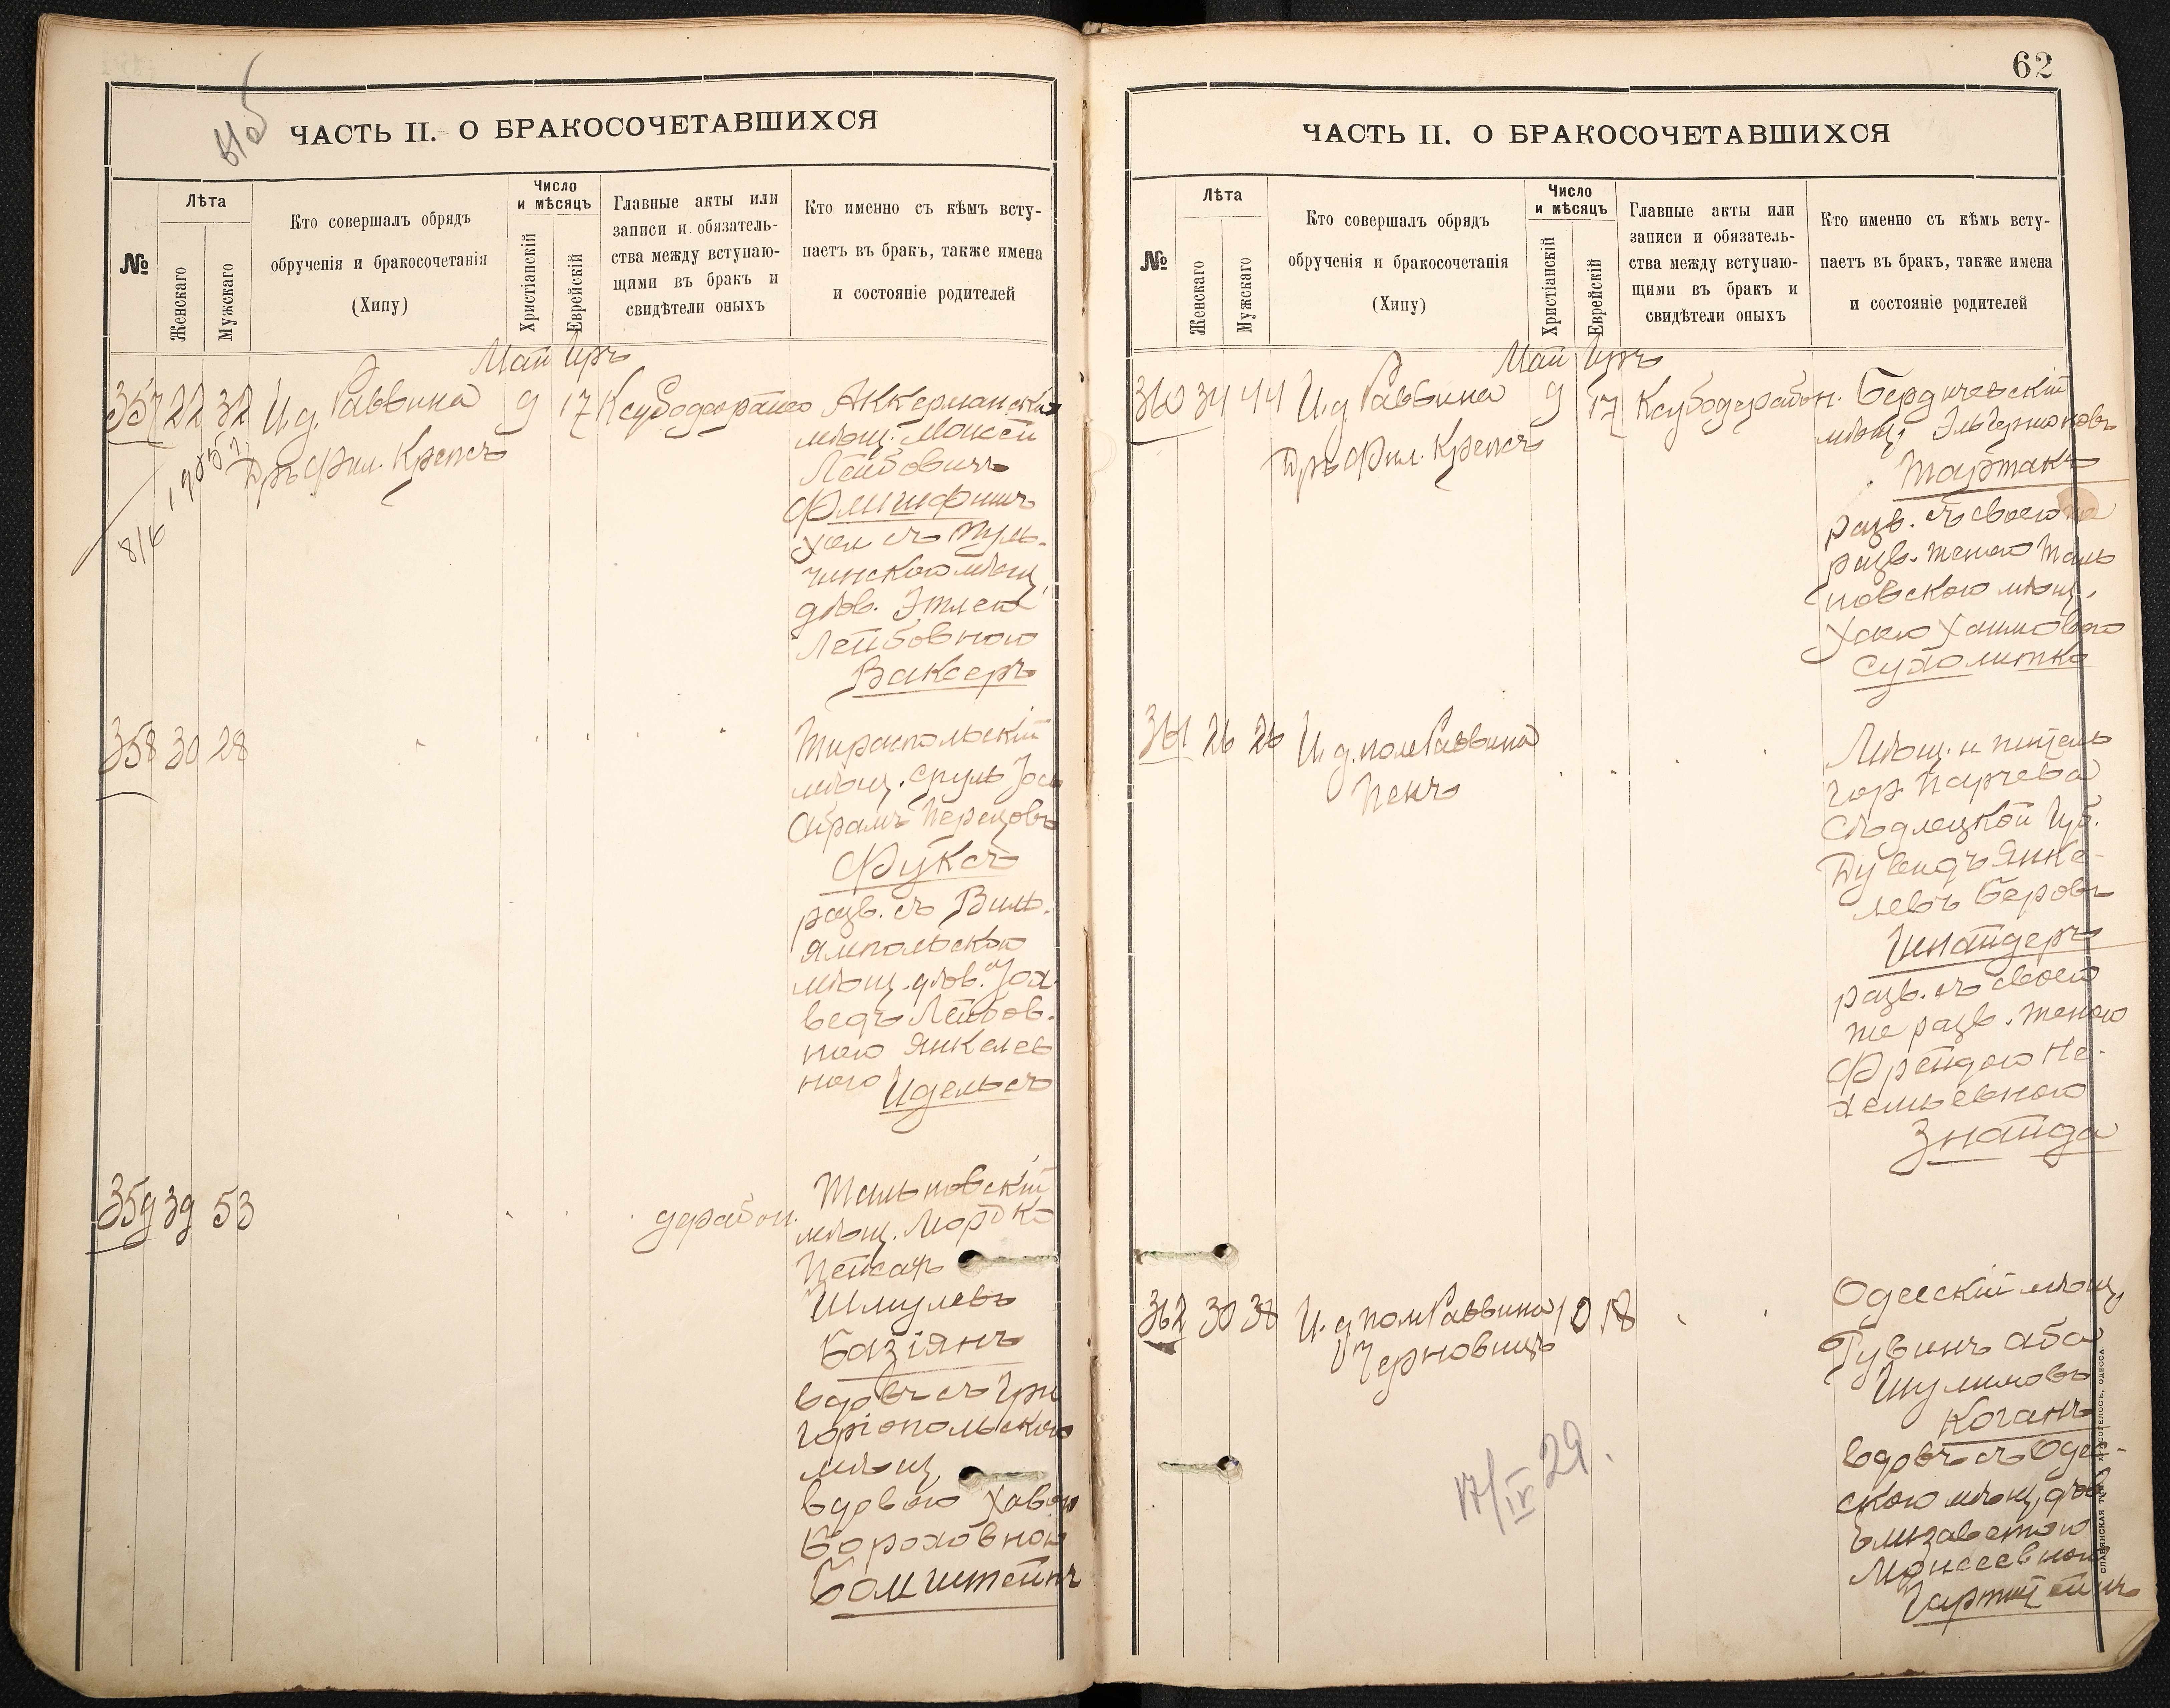 ЧАСТЬ II. О БРАКОСОЧЕТАВШИХСЯ
№
Лѣта
Женскаго
Мужскаго
Кто совершалъ обрядъ
обрученія и бракосочетанія
(Хипу)
Число
и мѣсяцъ
Христіанскій
Еврейскій
Главные акты или
записи и обязатель-
ства между вступаю-
щими въ бракъ и
свидѣтели оныхъ
Кто именно съ кѣмъ всту-
паетъ въ бракъ, также имена
и состояніе родителей
Май Іиръ
357 22 32 И. д. Раввина 9 17
Дръ Фил. Крепсъ
8/6
Аккерманскій
мѣщ. Моисей
Лейбовичъ
хол. съ Туль-
чинскою мѣщ.
дѣв. Этлею
Лейбовною
Ваксеръ
358 30 28
Тираспольскій
мѣщ. Сруль Іось
Абрамъ Перецовъ
Фуксъ
разв. съ
ямпольскою
мѣщ. дѣв. Іох-
ведъ Лейбов-
ною Янкелев
ною Идельсъ
359 39 53
Тальновскій
мѣщ. Мордко
Пейсахъ
Шмулевъ
Базіянъ
вдовъ съ Гри
горіопольскою
мѣщ.
вдовою Хавою
Бороховною
Бамштейнъ
62
ЧАСТЬ II. О БРАКОСОЧЕТАВШИХСЯ
№
Лѣта
Женскаго
Мужскаго
Кто совершалъ обрядъ
обрученія и бракосочетанія
(Хипу)
Число
и мѣсяцъ
Христіанскій
Еврейскій
Главные акты или
записи и обязатель-
ства между вступаю-
щими въ бракъ и
свидѣтели оныхъ
Кто именно съ кѣмъ всту-
паетъ въ бракъ, также имена
и состояніе родителей
Май Іиръ
360 34 44 И. д. Раввина 9 17
Дръ Фил. Крепсъ
Бердичевскій
мѣщ.
Тартакъ
разв. съ своею же
разв. женою Таль
новскою мѣщ.
Хаею Хаимовною
Сухолитко
361 26 26 И. д. пом. Раввина
Пенъ
Мѣщ. и житель
гор. Парчева
Сѣдлецкой губ.
Дувидъ Янке-
левъ Беровъ
Шнайдеръ
разв. съ своею
же разв. женою
Фрейдою Не-
хемьевною
Знайда
362 30 38 И. д. пом. Раввина 10 18
Черновицъ
Одесскій мѣщ.
Рувинъ Аба
Шулимовъ
Коганъ
вдовъ съ Одес-
скою мѣщ. дѣв.
Елизаветою
Моисеевною
17/IV 29.